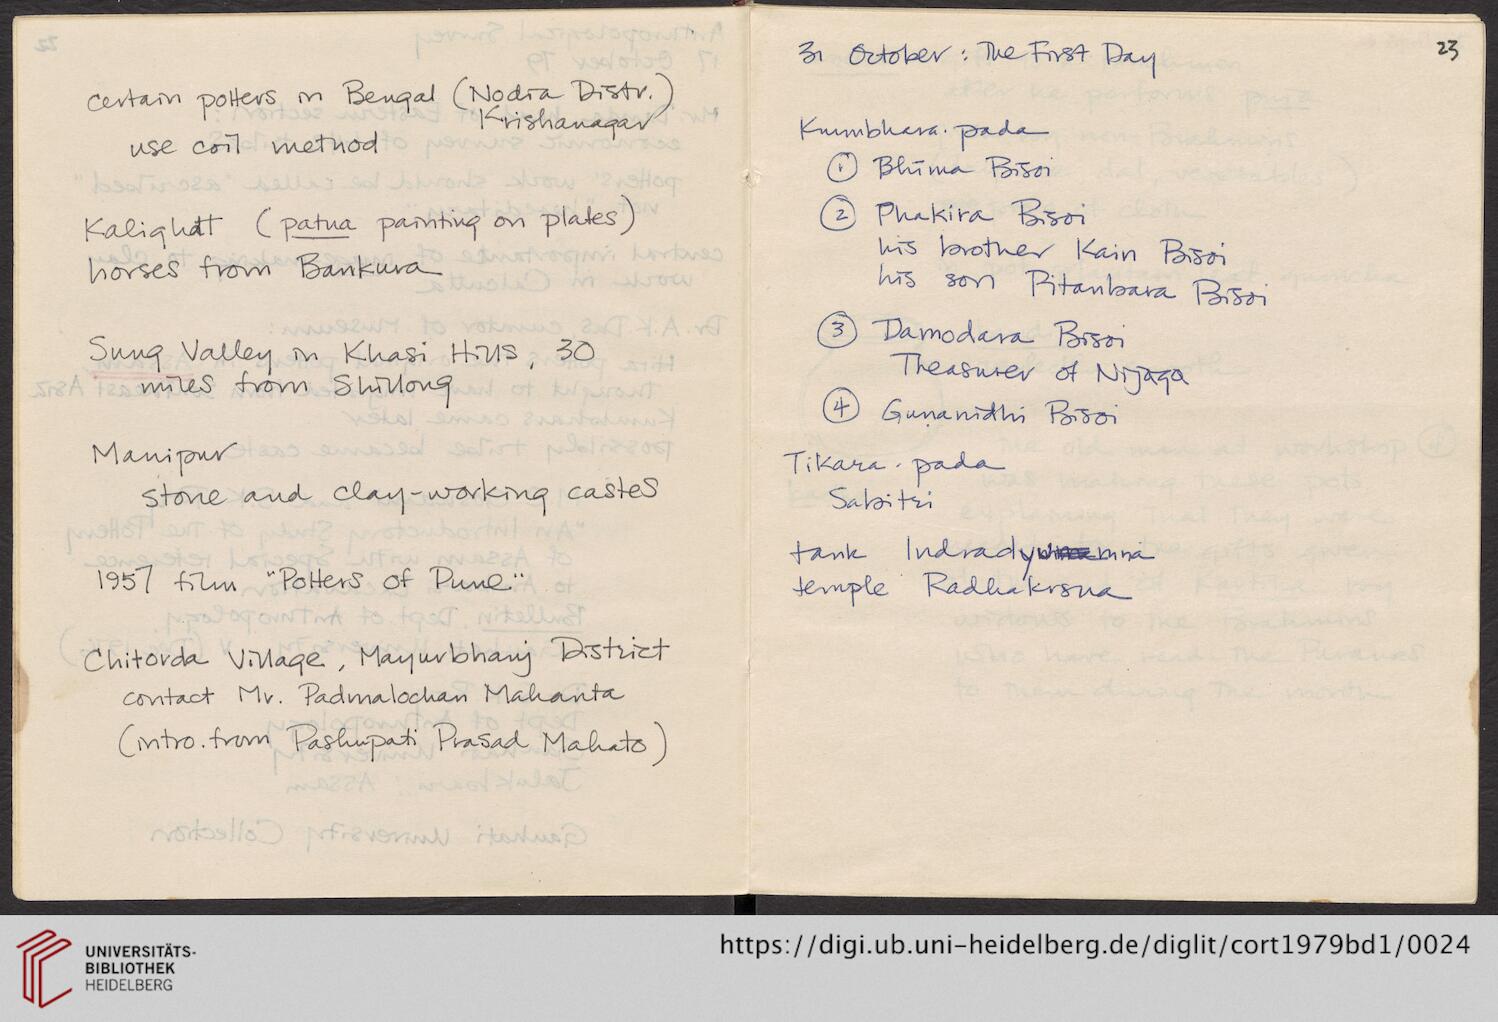 certain potters in Bengal (Nodia Distr.)
Krishanagar
use coil method
Kalighatt (patua painting on plates)
horses from Bankura
Sung Valley in Khasi Hills, 30
miles from Shillong
Manipur
stone and clay-working castes
1957 film "Potters of Pune"
Chitorda Village, Mayurbhanj District
contact Mr. Padmalochan Mahanta
(intro. from Pashupati Prasad Mahato)
31 October : The First Day
23
Kumbhara.pada
① Bhīma Bisoi
② Phakira Bisoi
his brother Kain Bisoi
his son Pitambara Bisoi
③ Damodara Bisoi
Theasurer of Nijaga
④ Guṇanidhi Bisoi
Tikara.pada
Sabitri
tank Indradyumna
temple Radhakrsna
UNIVERSITÄTS-
BIBLIOTHEK
HEIDELBERG
https://digi.ub.uni-heidelberg.de/diglit/cort1979bd1/0024